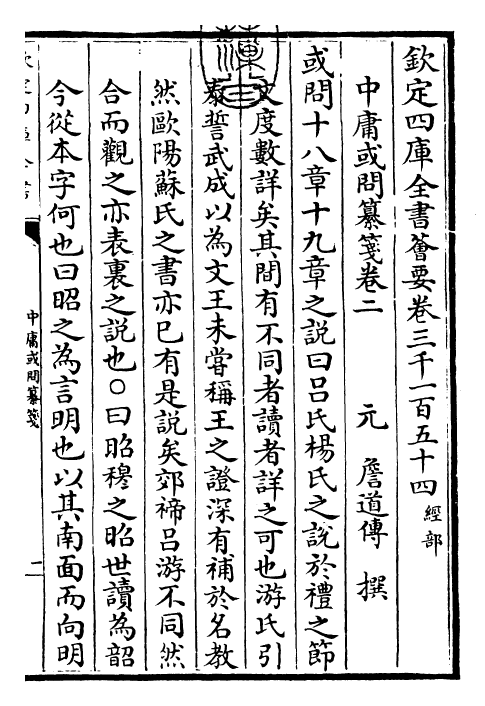 欽定四庫全書薈要卷三千一百五十四 經部
中庸或問纂箋卷二
元 詹道傳 撰
或問十八章十九章之説曰吕氏楊氏之説於禮之節
文度數詳矣其間有不同者讀者詳之可也游氏引
泰誓武成以為文王未嘗稱王之證深有補於名教
然歐陽蘇氏之書亦已有是説矣郊禘吕游不同然
合而觀之亦表裏之説也○曰昭穆之昭世讀為韶
今從本字何也曰昭之為言明也以其南面而向明
中庸或問纂箋